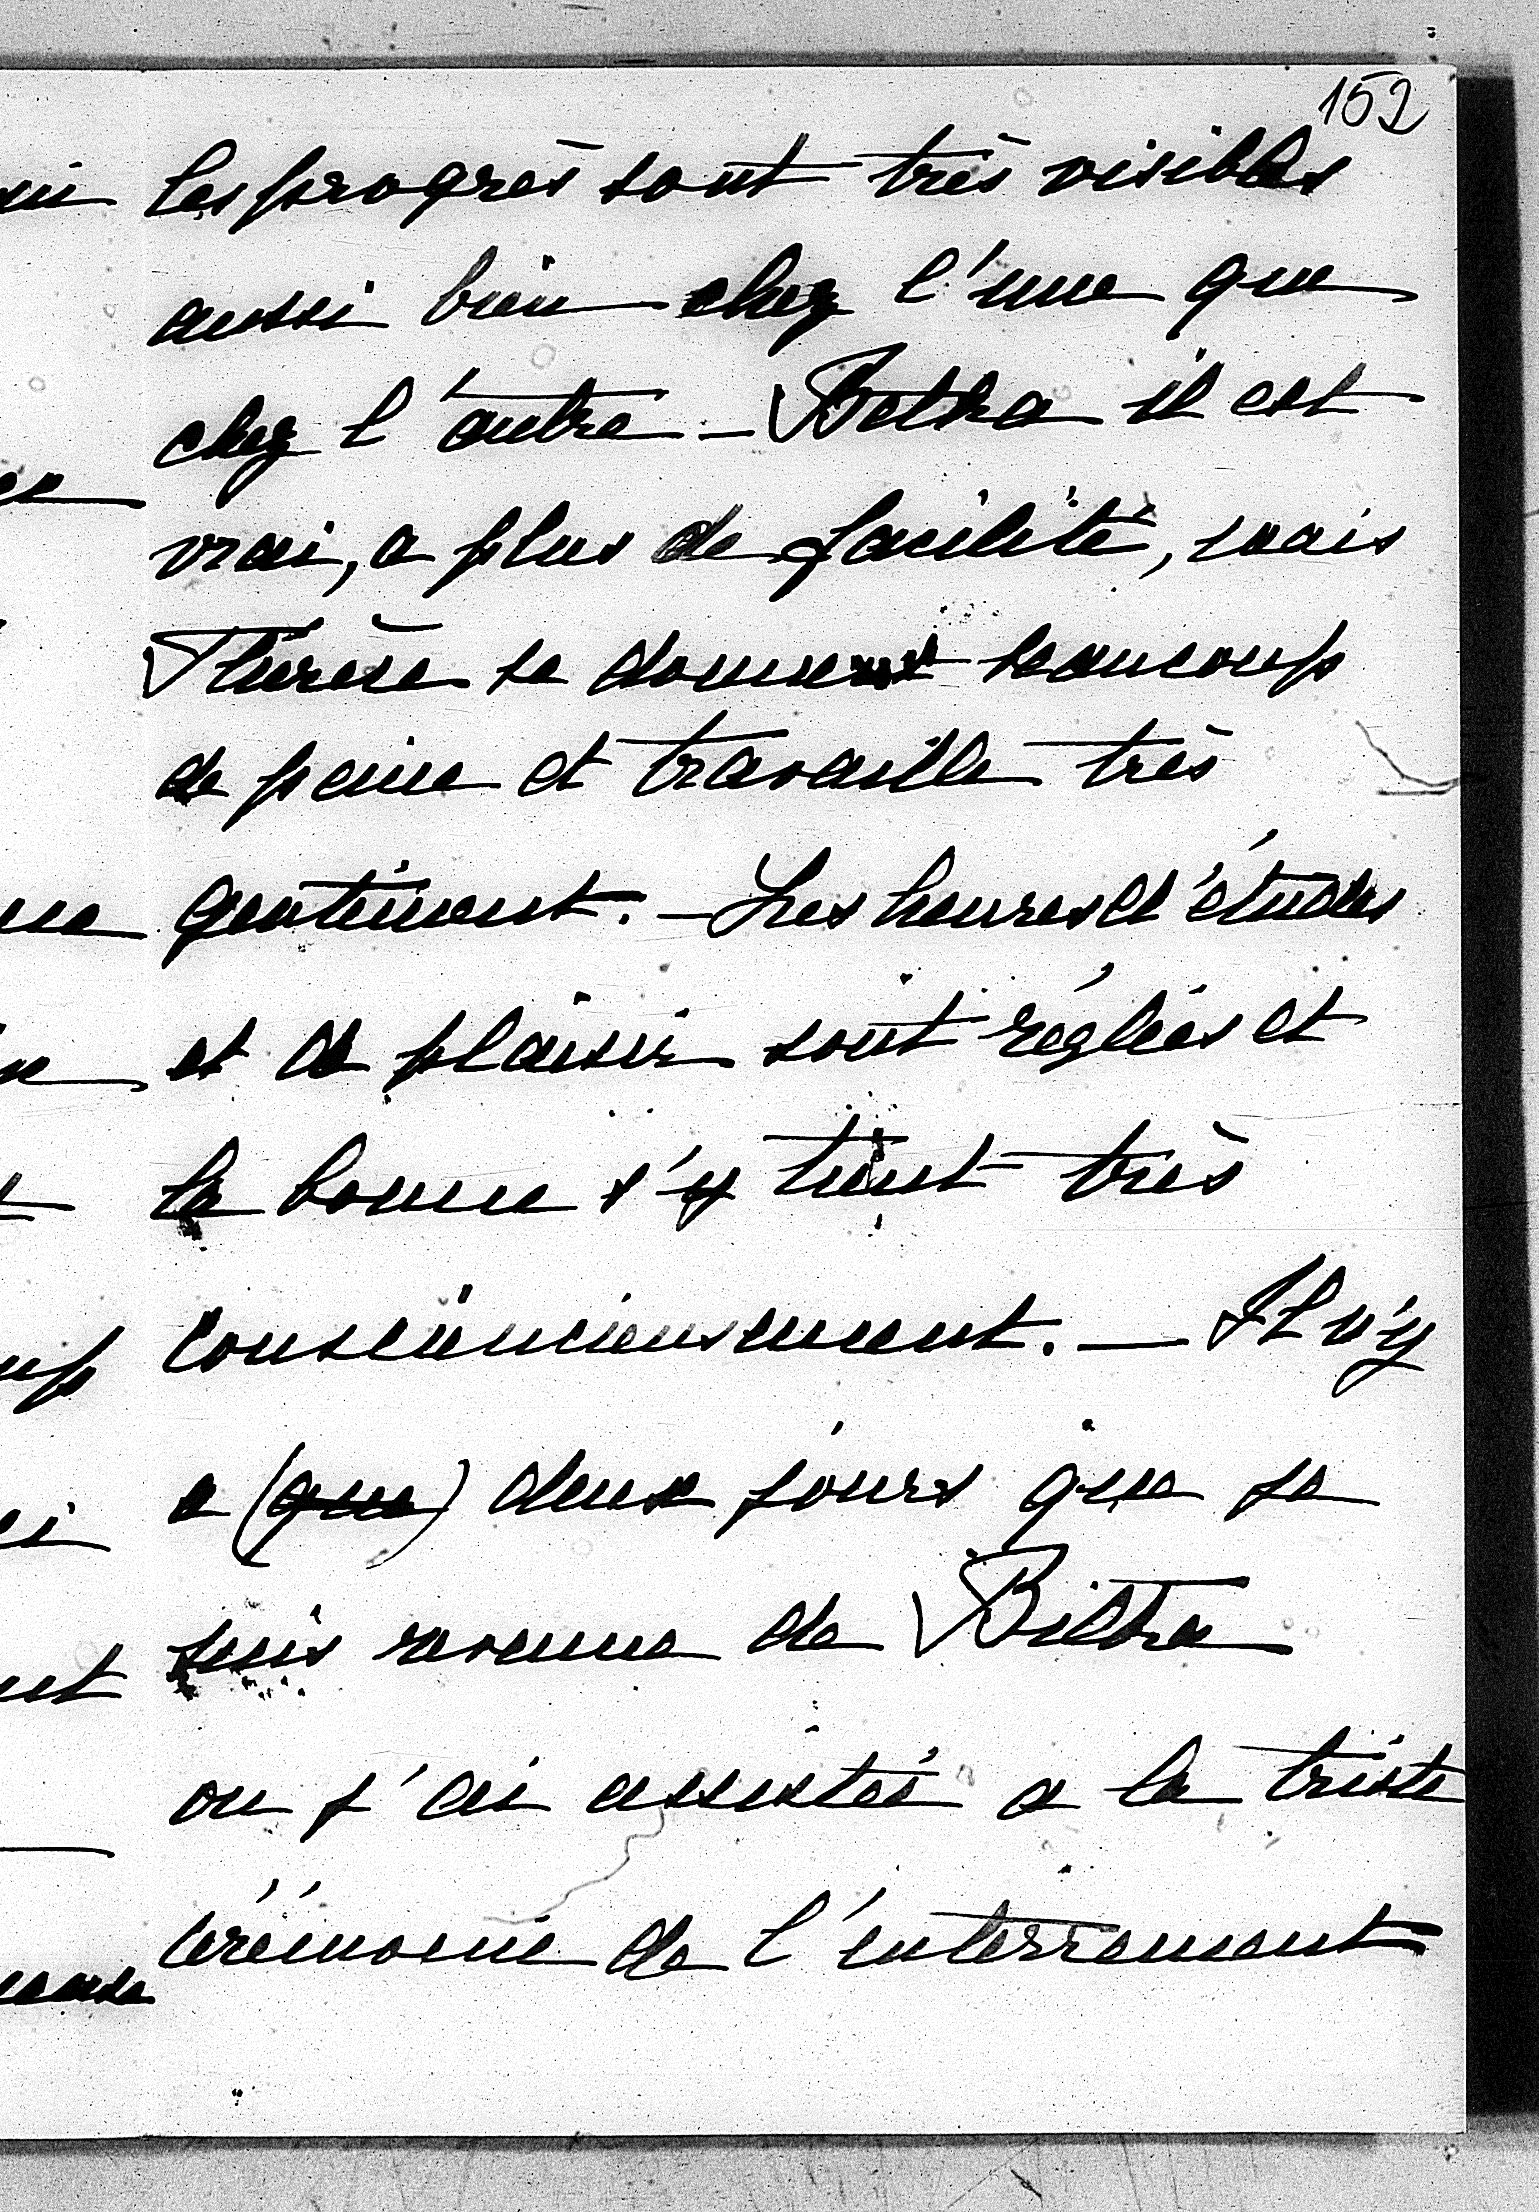 152
les progrès sont très visibles
aussi bien chez l'une que
chez l'autre – Betka il est
vrai, a plus de facilité, mais
Thérèse se donne beaucoup
de peine et travaille très
gentiment. – Les heures d'études
et de plaisir sont réglées et
la bonne s'y tient très
consciencieusement. – Il n'y
a (que) deux jours que je
suis revenue de
ou j'ai assistée a la triste
cérémonie de l'enterrement